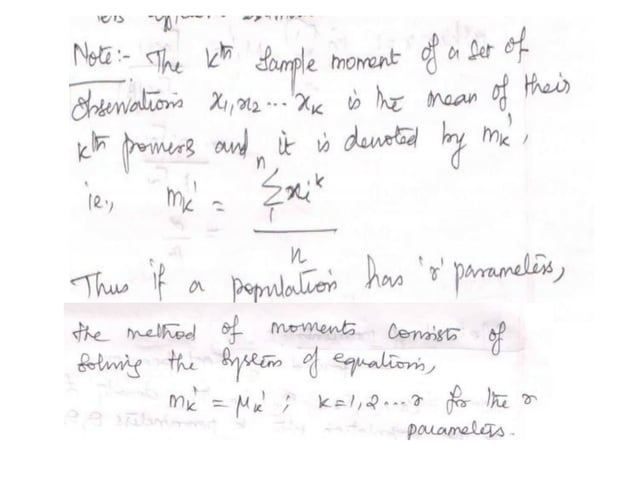 Note:- The kth Sample moment of a set of
Observations x₁, x₂ ... xₖ is the mean of their
kth powers and it is denoted by mₖ',
ie., mₖ' = n Σ 1 xᵢᵏ
n
Thus if a population has 'r' parameters,
the method of moments consists of
solving the system of equations,
mₖ' = μₖ' ; k=1,2...r for the r
parameters.